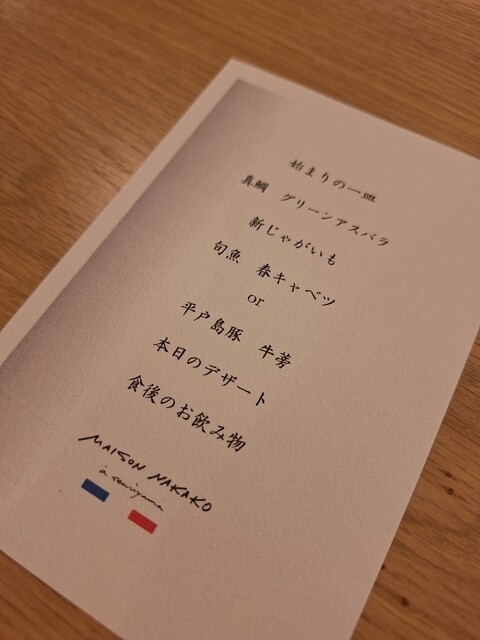 始まりの一皿
真鯛 グリーンアスパラ
新じゃがいも
旬魚 春キャベツ
or
平戸島豚 牛蒡
本日のデザート
食後のお飲み物
MAISON NAKAKO
à senriyama